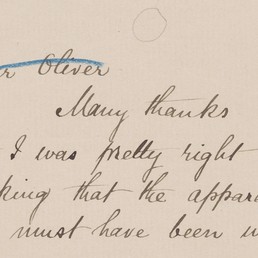 r Oliver
Many thanks
I was pretty right
king that the appara
must have been u